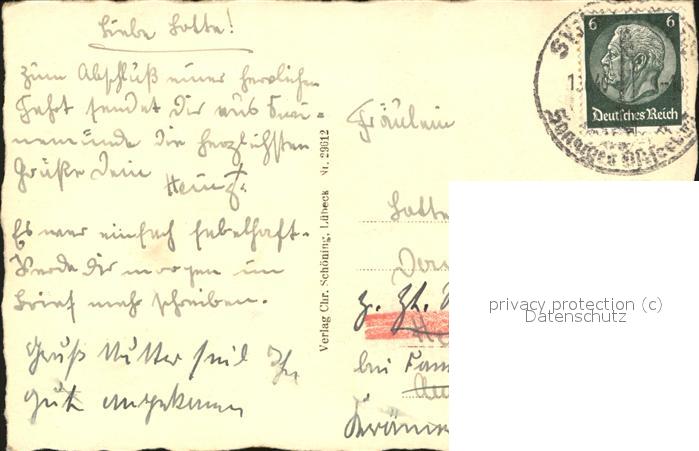 Liebe Lotte!
Zum Abschluß einer herrlichen
Fahrt sendet Dir aus Swi-
nemünde die herzlichsten
Grüße Dein
Heinz.
Es war einfach fabelhaft.
Werde Dir morgen im
Brief mehr schreiben.
Gruß Mutter sind
gut angekommen
Verlag Chr. Schöning, Lübeck Nr. 29612
Fräulein
Lotte
z. Zt.
bei Fam
6 6
Deutsches Reich
privacy protection (c)
Datenschutz